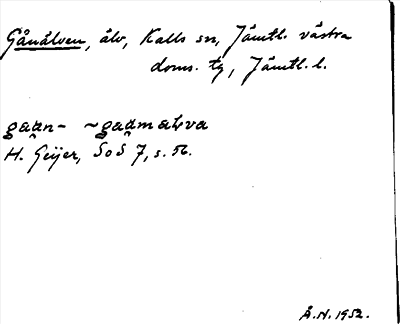 Gånälven, älv, Kalls sn, Jämtl. västra
doms. tg, Jämtl. l.
gaan- ~ gaamalva
H. Geijer, SoS 7, s. 56.
Å.H. 1952.